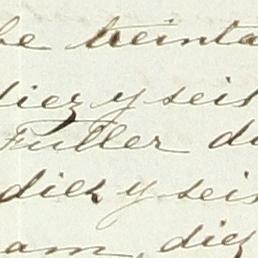 be treinta
diez y seis
Fuller de
diez y seis
am, diez